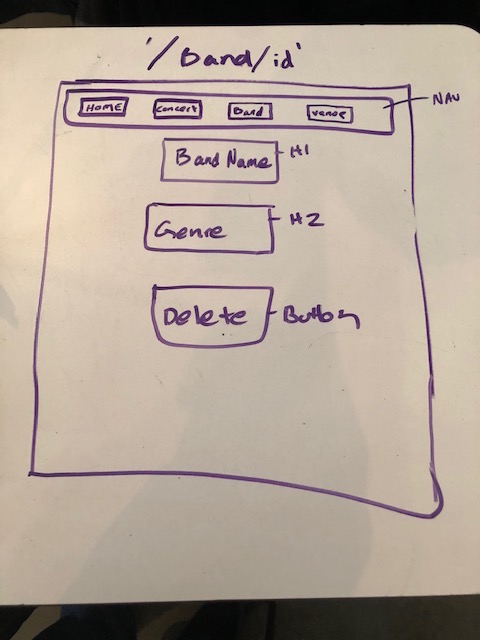 '/Band/id'
HOME Concert Band Venue NAV
Band Name H1
Genre H2
Delete Button